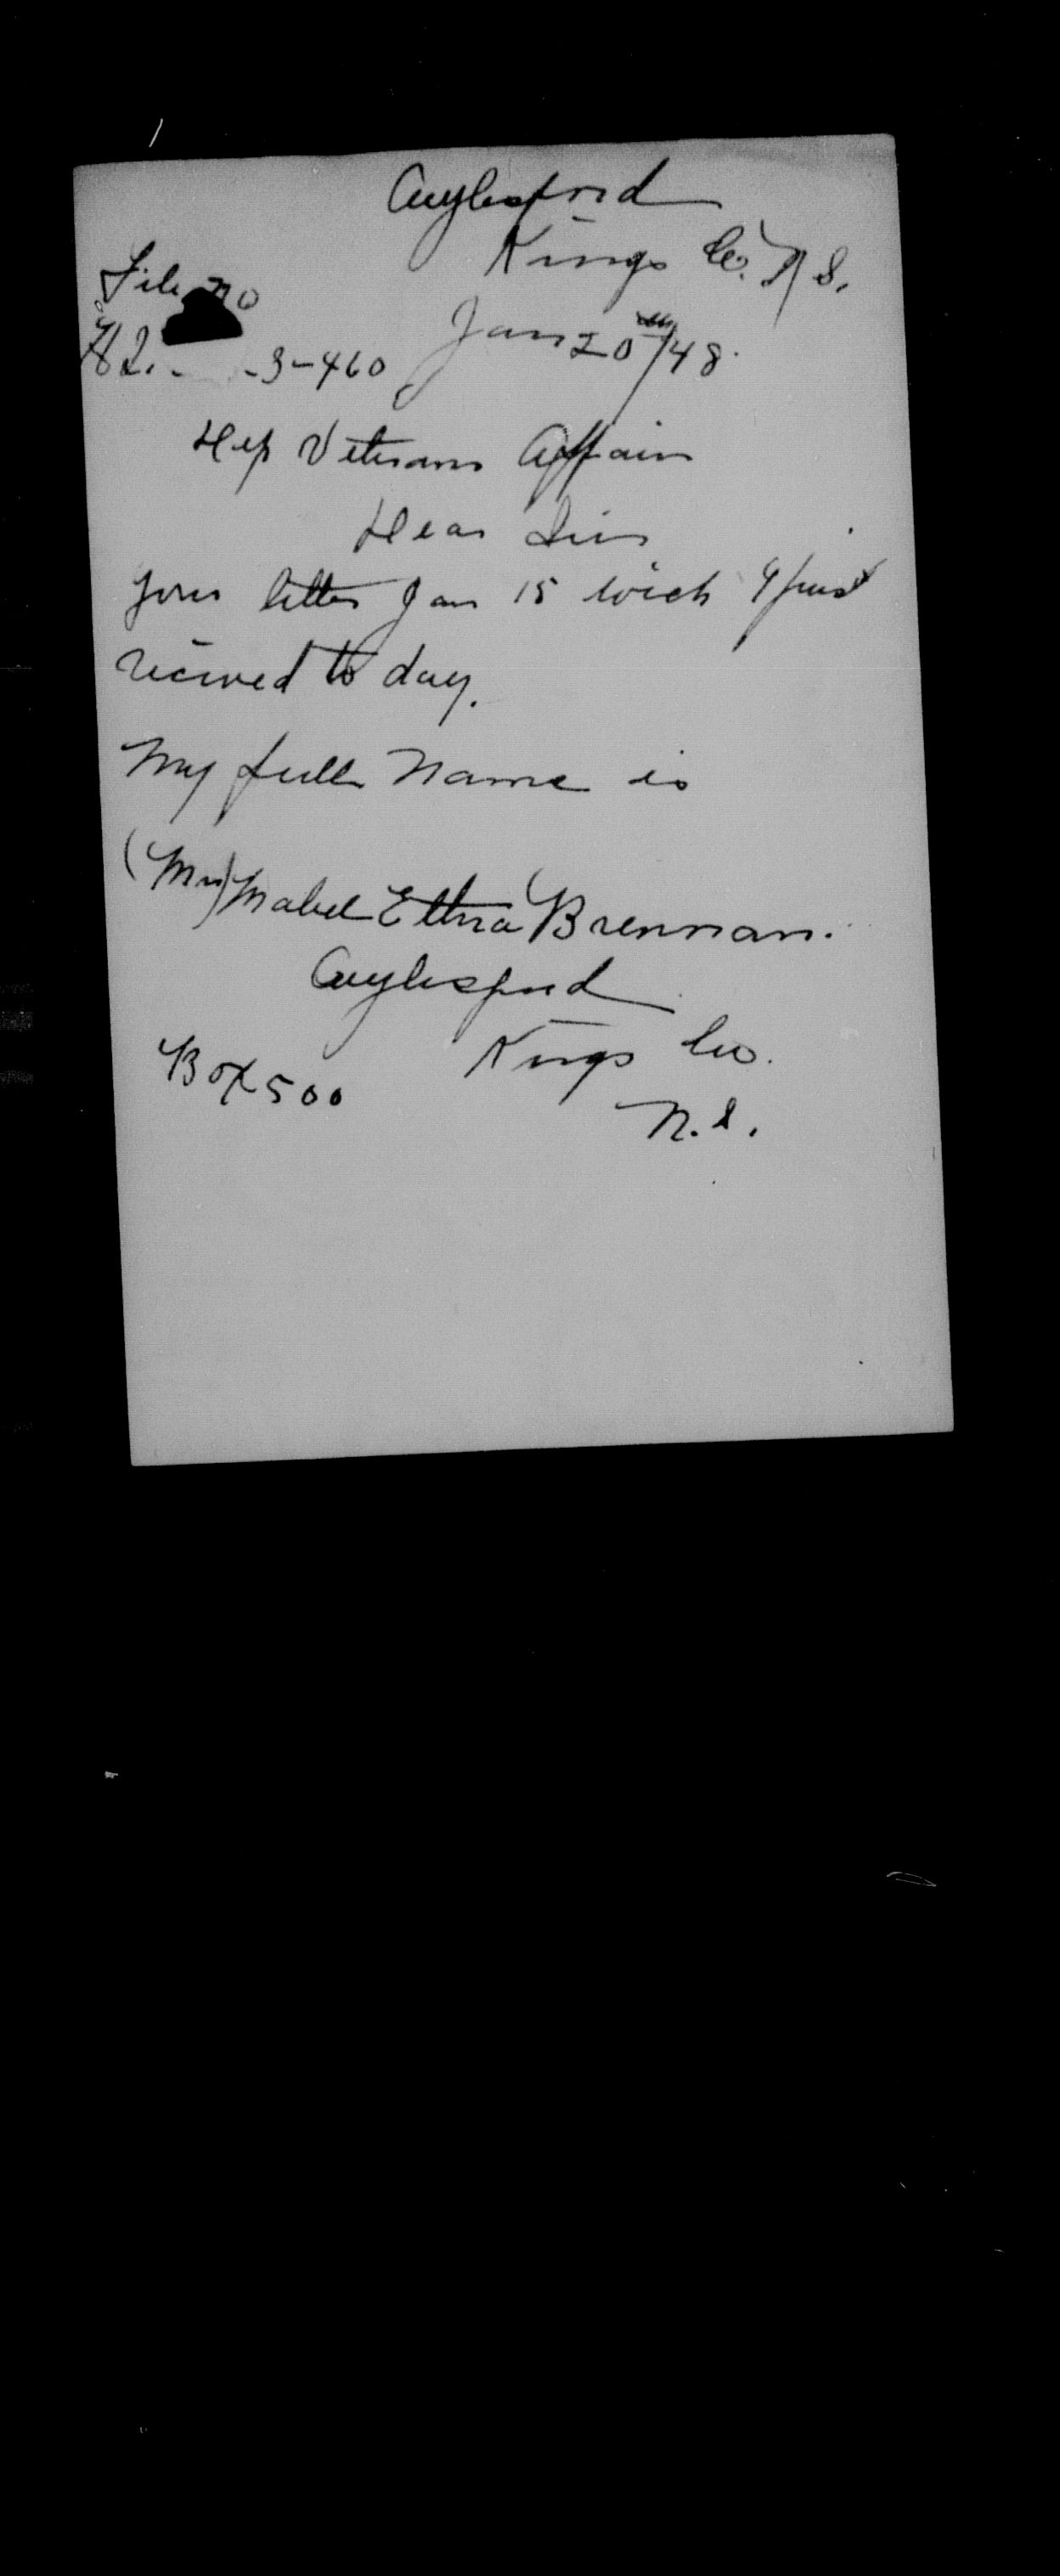 Aylesford
Kings Co. N S.
File no
H2. - -3-460
Jan 20th/48.
Dep Veterans Affairs
Dear Sirs
Your letter Jan 15 wich I just
recived to day.
My full Name is
(Mrs) Mabel Ethra Brennan.
Aylesford
Kings Co.
Box 500
N.S.